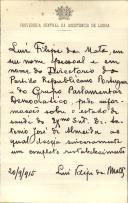 PROVEDORIA CENTRAL DA ASSISTENCIA DE LISBOA
Luiz Filipe da Mata em
seu nome pessoal e em
nome do Directorio do
Partido Republicano Portuguez
e do Grupo Parlamentar
Democratico, pede infor-
mações sobre o estado de
saude do Exmo Snr. Dr. An-
tonio José de Almeida ao
qual deseja sinceramente
um completo restabelecimento
20/9/915
Luiz Filipe da Matta